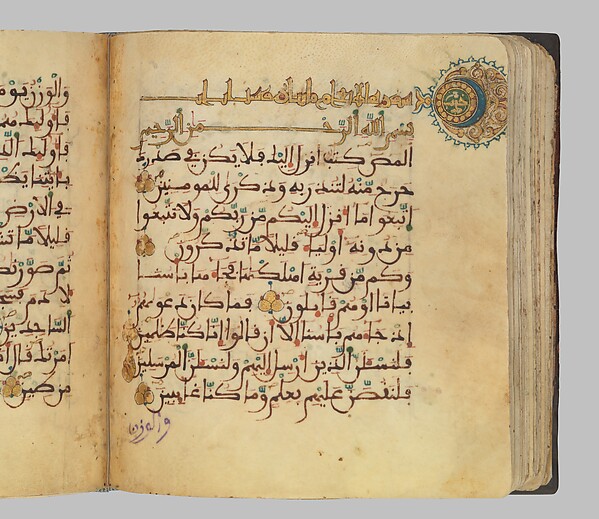 سورة الاعراف
بسم الله الرحمن الرحيم
المص كتب انزل اليك فلا يكن في صدرك
حرج منه لتنذر به وذكرى للمومنين
اتبعوا ما انزل اليكم من ربكم ولا تتبعوا
من دونه اوليا قليلا ما تذكرون
وكم من قرية اهلكنها فجاها باسنا
بيتا او هم قايلون فما كان دعويهم
اذ جاهم باسنا الا ان قالوا انا كنا ظلمين
فلنسلن الذين ارسل اليهم ولنسلن المرسلين
فلنقصن عليهم بعلم وما كنا غايبين
والوزن
والوزن يوم
فاوليك هم
فاوليك
باياتنا
في الارض
قليلا ما
ثم صورنا
لادم
الساجدين
امرتك قال
من طين